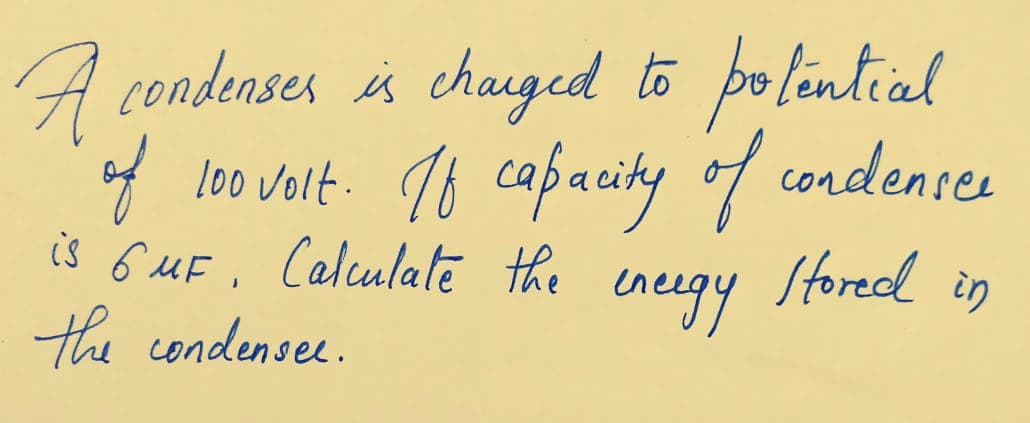 A condenser is charged to potential
of 100 volt. If capacity of condenser
is 6 μF, Calculate the energy stored in
the condenser.